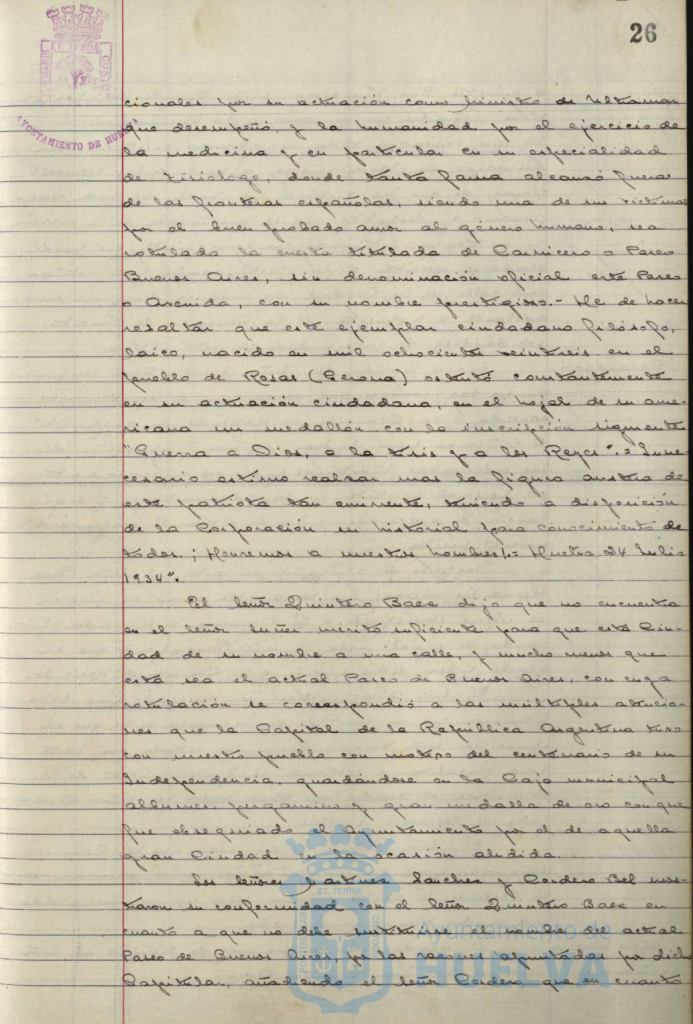 26
AYUNTAMIENTO DE HUELVA
cionales por su actuación como Ministro de Ultramar
que desempeñó, y la humanidad por el ejercicio de
la medicina y en particular en su especialidad
de tisiólogo, donde tanta fama alcanzó fuera
de las fronteras españolas, siendo una de sus victimas
por el buen probado amor al género humano, sea
rotulada la cuesta titulada de Carnicero o Paseo
Buenos Aires, sin denominación oficial este Paseo
o Avenida, con su nombre prestigioso.- He de hacer
resaltar que este ejemplar ciudadano filósofo,
laico, nacido en mil ochocientos veintiseis en el
pueblo de Rosas (Gerona) ostentó constantemente
en su actuación ciudadana, en el hojal de su ame-
ricana un medallón con la inscripción siguiente
"Guerra a Dios, a la tisis y a los Reyes".= Inne-
cesario estimo realzar mas la figura austera de
este patriota tan eminente, teniendo a disposición
de la Corporación su historial para conocimiento de
todos. ¡Honremos a nuestros hombres!.= Huelva 24 Julio
1934".
El Señor Quintero Baez dijo que no encuentra
en el Señor Suñer mérito suficiente para que esta Ciu-
dad de su nombre a una calle, y mucho menos que
esta sea el actual Paseo de Buenos Aires, con cuya
rotulación se correspondió a las múltiples atencio-
nes que la Capital de la República Argentina tuvo
con nuestro pueblo con motivo del centenario de su
Independencia, guardándose en la Caja municipal
albumes, pergamino y gran medalla de oro con que
fue obsequiado el Ayuntamiento por el de aquella
gran Ciudad en la ocasión aludida.
Los Señores Martinez Sanchez y Cordero Bel mos-
traron su conformidad con el Señor Quintero Baez en
cuanto a que no debe sustituirse el nombre del actual
Paseo de Buenos Aires, por las razones apuntadas por dicho
Capitular, añadiendo el Señor Cordero que en cuanto
Ayuntamiento de
HUELVA